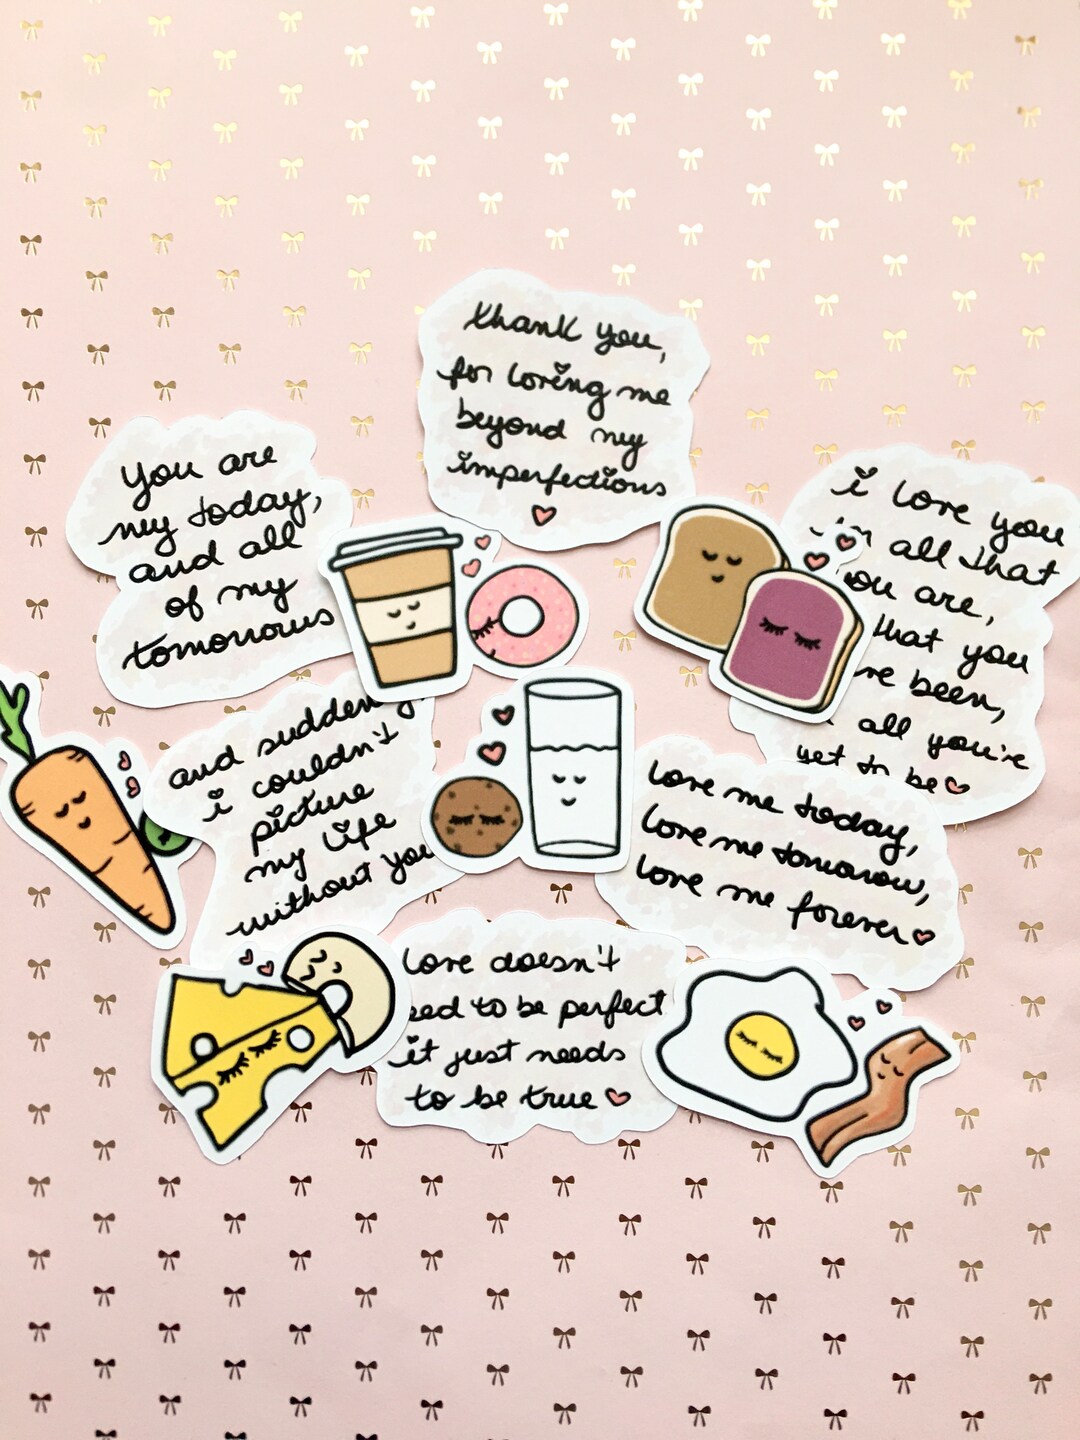 thank you,
for loving me
beyond my
imperfections
you are
my today,
and all
of my
tomorrows
i love you
in all that
you are,
that you
've been,
all you're
yet to be
and suddenly
i couldn't
picture
my life
without you
love me today,
love me tomorrow,
love me forever
love doesn't
need to be perfect
it just needs
to be true